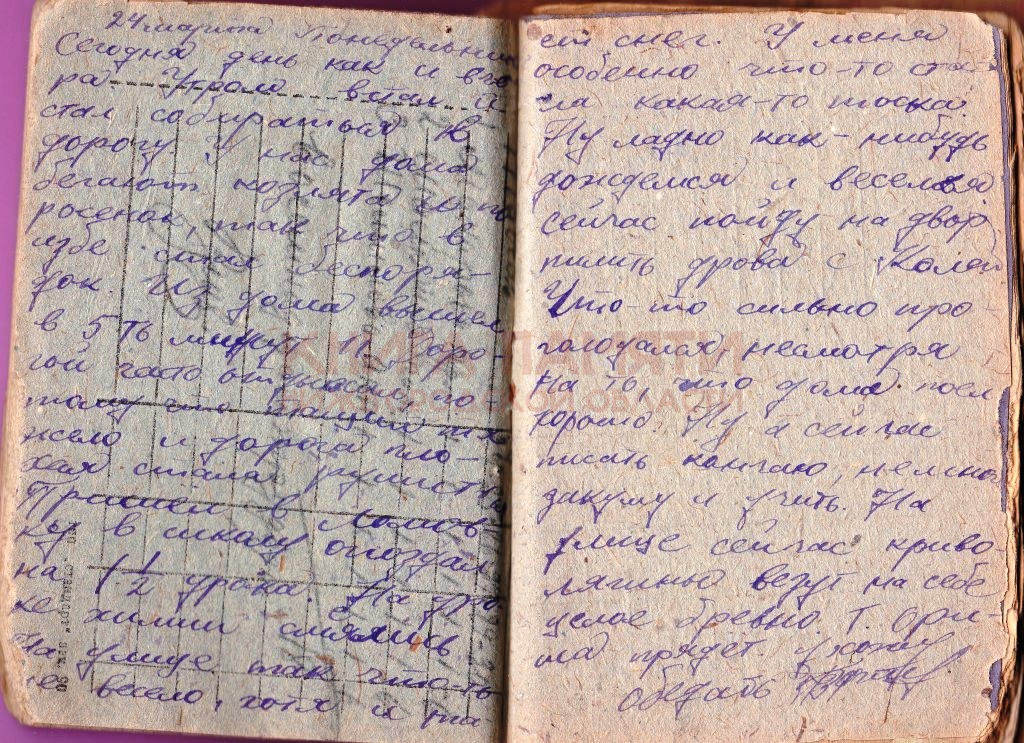 24 марта Понедельник
Сегодня день как и вче
ра Утром встал и
стал собираться в
дорогу У нас дома
бегают козлята и по
росенок, так что в
избе беспоря-
док. Из дома вышел
в 5 ть минут Доро-
гой часто отдыхал, по-
тому что тащил тя
жело и дорога пло-
хая стала
Пришел в Ломов
ку в школу опоздал
на 1 1/2 урока. На уро
ке химии смеялись
На улице так что-то
не весело, хотя и та
ет снег. У меня
особенно что-то ста
ла какая-то тоска.
Ну ладно как-нибудь
дождемся и веселья
сейчас пойду на двор
пилить дрова с Колей
Что-то сильно про-
голодался, несмотря
на то, что дома поел
хорошо. Ну а сейчас
писать кончаю, немно
закушу и учить. На
улице сейчас криво-
везут на себе
целое бревно. Т. Ори-
ша прядет. Ухожу
обедать
КНИГА ПАМЯТИ
ОБЛАСТИ